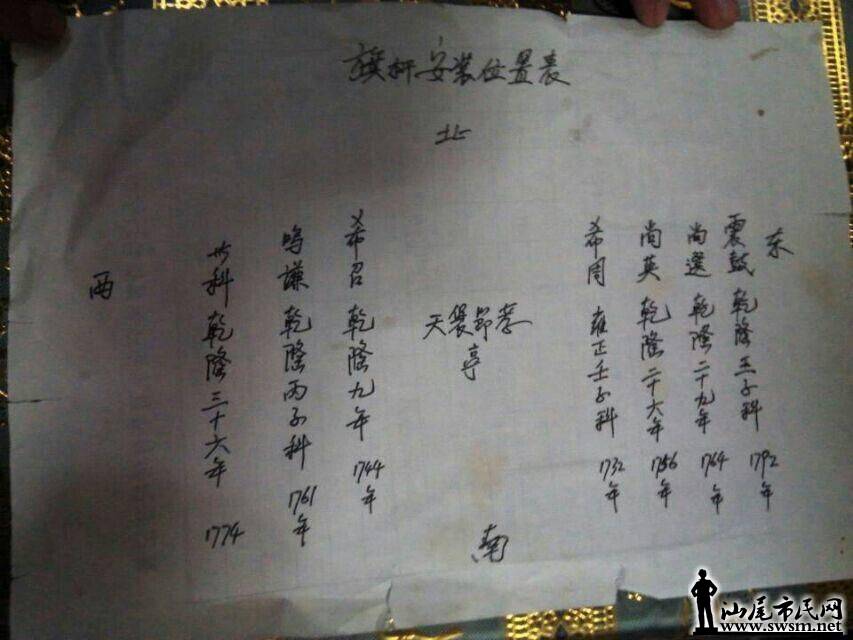 旗杆安装位置表
北
东
震鼓 乾隆壬子科 1792年
尚選 乾隆二十九年 1764年
尚英 乾隆二十六年 1756年
希周 雍正壬子科 1732年
天褒節孝
亭
希召 乾隆九年 1744年
鸣谦 乾隆丙子科 1761年
科 乾隆三十六年 1774
西
南
汕尾市民网
www.swsm.net